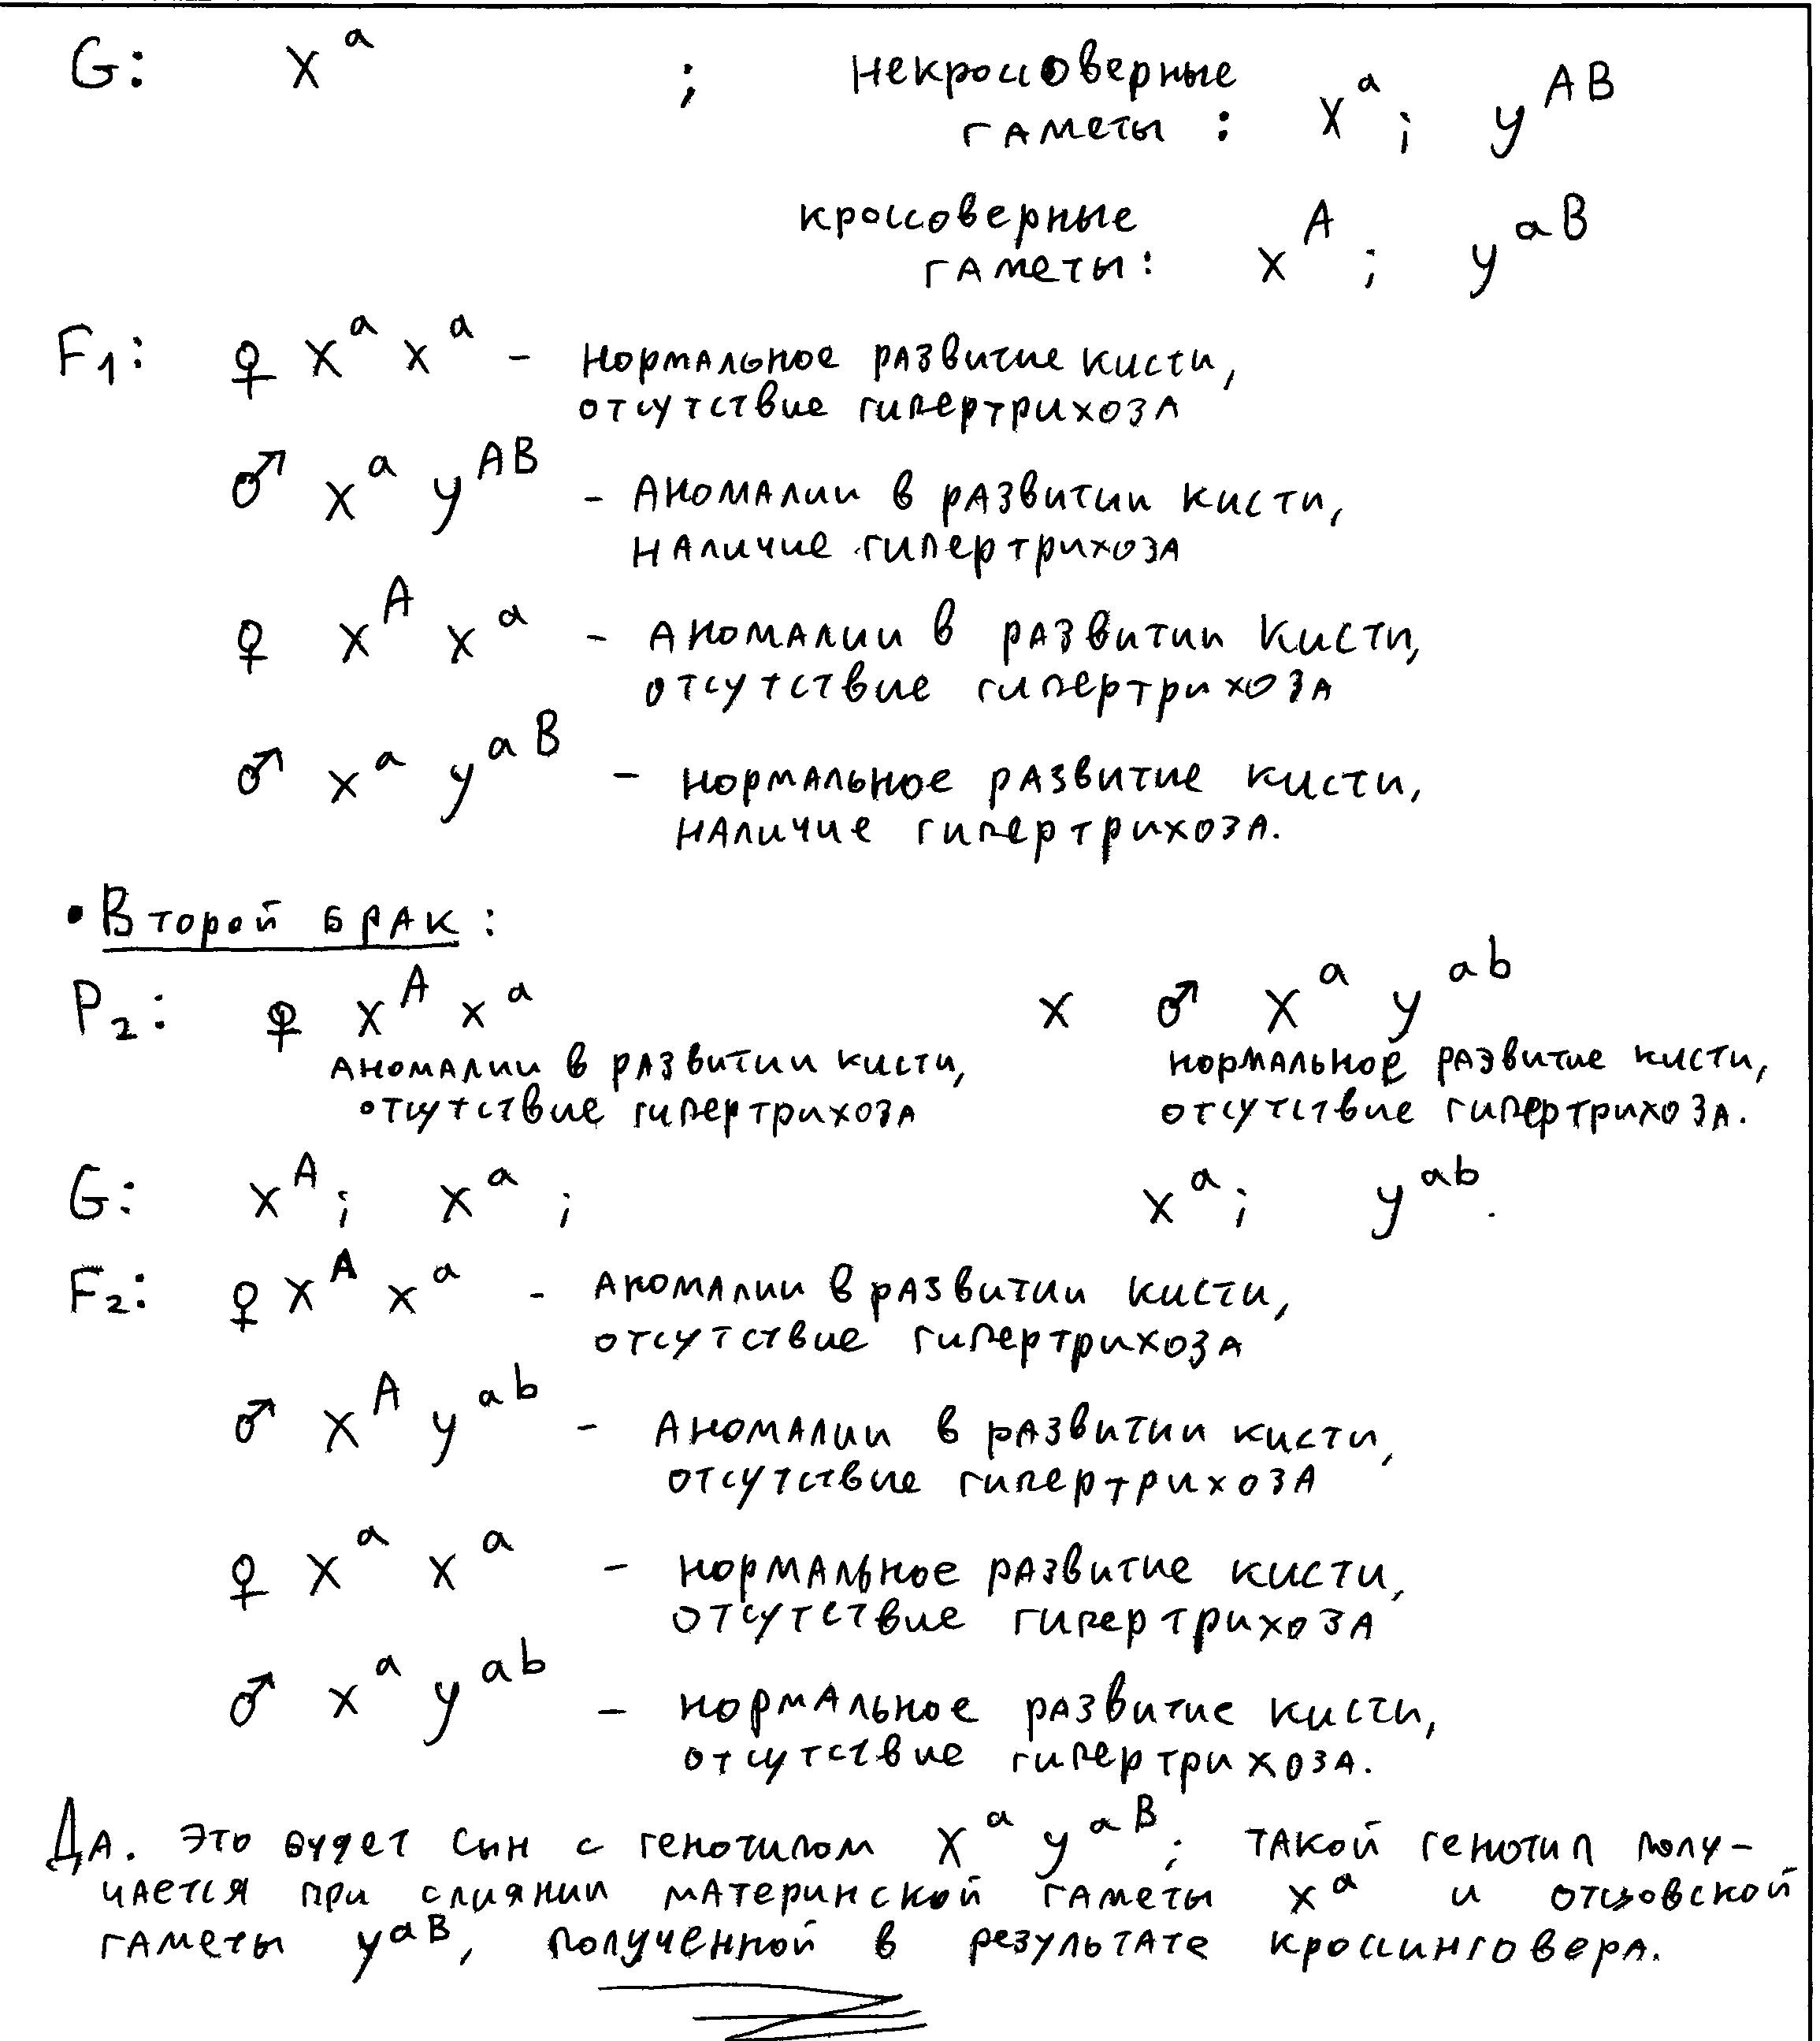 G: X^a ; некроссоверные
гаметы: X^a; Y^AB
кроссоверные
гаметы: X^A; Y^aB
F₁: ♀ X^a X^a – нормальное развитие кисти,
отсутствие гипертрихоза
♂ X^a Y^AB – аномалии в развитии кисти,
наличие гипертрихоза
♀ X^A X^a – аномалии в развитии кисти,
отсутствие гипертрихоза
♂ X^a Y^aB – нормальное развитие кисти,
наличие гипертрихоза.
• Второй брак:
P₂: ♀ X^A X^a x ♂ X^a Y^ab
аномалии в развитии кисти, нормальное развитие кисти,
отсутствие гипертрихоза отсутствие гипертрихоза.
G: X^A; X^a; X^a; Y^ab.
F₂: ♀ X^A X^a – аномалии в развитии кисти,
отсутствие гипертрихоза
♂ X^A Y^ab – аномалии в развитии кисти,
отсутствие гипертрихоза
♀ X^a X^a – нормальное развитие кисти,
отсутствие гипертрихоза
♂ X^a Y^ab – нормальное развитие кисти,
отсутствие гипертрихоза.
Да. Это будет сын с генотипом X^a Y^aB; такой генотип полу-
чается при слиянии материнской гаметы X^a и отцовской
гаметы Y^aB, полученной в результате кроссинговера.